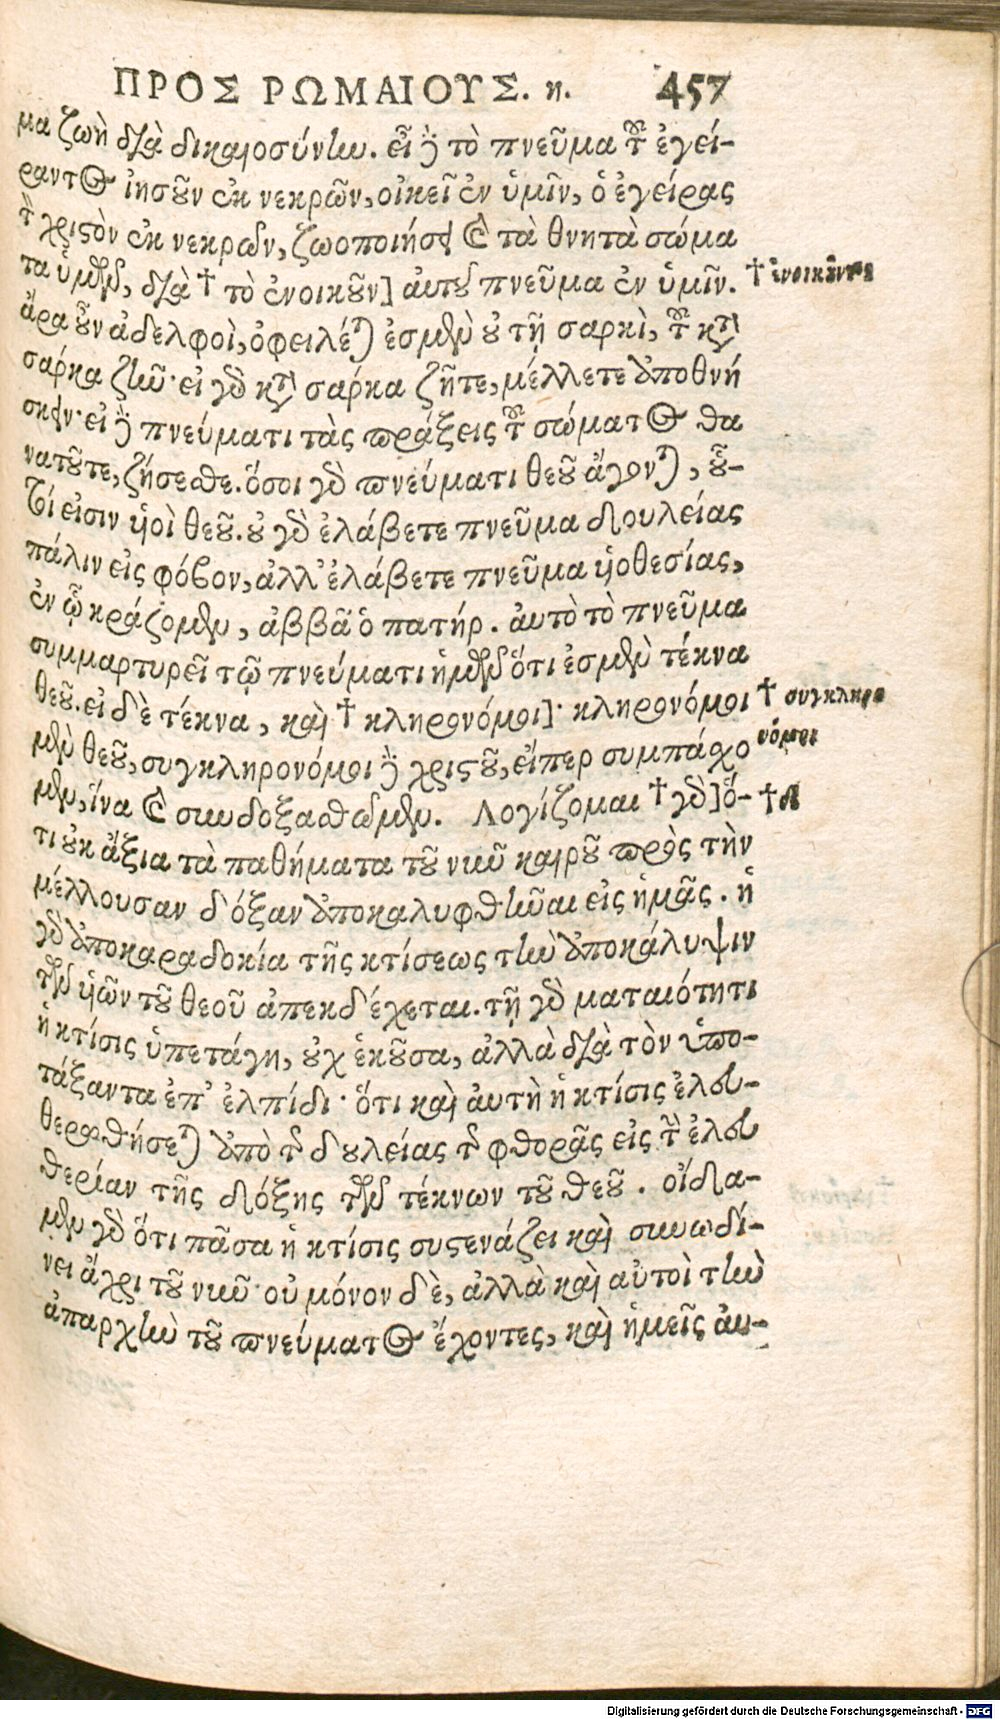 ΠΡΟΣ ΡΩΜΑΙΟΥΣ. η. 457
μα ζωὴ διὰ δικαιοσύνην. εἰ δὲ τὸ πνεῦμα τοῦ ἐγεί-
ραντος ἰησοῦν ἐκ νεκρῶν, οἰκεῖ ἐν ὑμῖν, ὁ ἐγείρας
τὸν χριστὸν ἐκ νεκρῶν, ζωοποιήσει καὶ τὰ θνητὰ σώμα
τα ὑμῶν, διὰ † τὸ ἐνοικοῦν] αὐτοῦ πνεῦμα ἐν ὑμῖν. † ἐνοικοῦντος
ἄρα οὖν ἀδελφοὶ, ὀφειλέται ἐσμὲν οὐ τῇ σαρκὶ, τοῦ κατὰ
σάρκα ζῆν· εἰ γὰρ κατὰ σάρκα ζῆτε, μέλλετε ἀποθνή
σκειν· εἰ δὲ πνεύματι τὰς πράξεις τοῦ σώματος θα
νατοῦτε, ζήσεσθε. ὅσοι γὰρ πνεύματι θεοῦ ἄγονται, οὗ-
τοί εἰσιν υἱοὶ θεοῦ. οὐ γὰρ ἐλάβετε πνεῦμα δουλείας
πάλιν εἰς φόβον, ἀλλ' ἐλάβετε πνεῦμα υἱοθεσίας,
ἐν ᾧ κράζομεν, ἀββᾶ ὁ πατήρ. αὐτὸ τὸ πνεῦμα
συμμαρτυρεῖ τῷ πνεύματι ἡμῶν ὅτι ἐσμὲν τέκνα
θεοῦ. εἰ δὲ τέκνα, καὶ † κληρονόμοι]· κληρονόμοι † συγκληρο
μὲν θεοῦ, συγκληρονόμοι δὲ χριστοῦ, εἴπερ συμπάσχο νόμοι
μεν, ἵνα καὶ συνδοξασθῶμεν. Λογίζομαι † γὰρ] ὅ- † δὲ
τι οὐκ ἄξια τὰ παθήματα τοῦ νῦν καιροῦ πρὸς τὴν
μέλλουσαν δόξαν ἀποκαλυφθῆναι εἰς ἡμᾶς. ἡ
γὰρ ἀποκαραδοκία τῆς κτίσεως τὴν ἀποκάλυψιν
τῶν υἱῶν τοῦ θεοῦ ἀπεκδέχεται. τῇ γὰρ ματαιότητι
ἡ κτίσις ὑπετάγη, οὐχ ἑκοῦσα, ἀλλὰ διὰ τὸν ὑπο-
τάξαντα ἐπ' ἐλπίδι· ὅτι καὶ αὐτὴ ἡ κτίσις ἐλευ-
θερωθήσεται ἀπὸ τῆς δουλείας τῆς φθορᾶς εἰς τὴν ἐλευ
θερίαν τῆς δόξης τῶν τέκνων τοῦ θεοῦ. οἴδα-
μεν γὰρ ὅτι πᾶσα ἡ κτίσις συστενάζει καὶ συνωδί-
νει ἄχρι τοῦ νῦν· οὐ μόνον δὲ, ἀλλὰ καὶ αὐτοὶ τὴν
ἀπαρχὴν τοῦ πνεύματος ἔχοντες, καὶ ἡμεῖς αὐ-
Digitalisierung gefördert durch die Deutsche Forschungsgemeinschaft - DFG